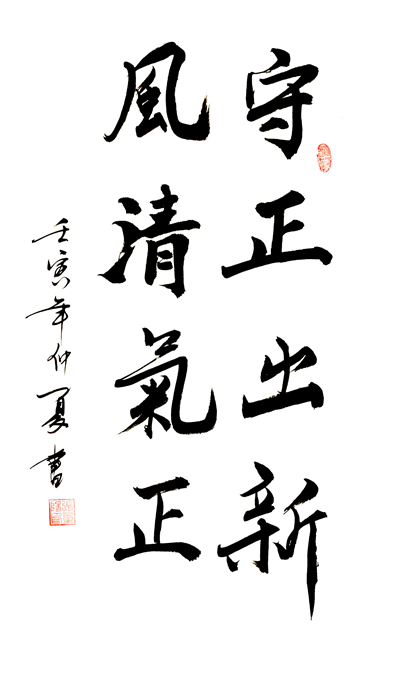 守正出新
風清氣正
壬寅年仲夏書